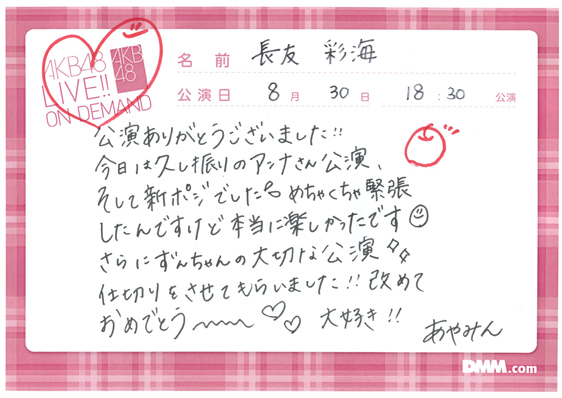 AKB48
LIVE!!
ON DEMAND
AKB
48
名前 長友 彩海
公演日 8月30日 18:30 公演
公演ありがとうございました!!
今日は久し振りのアンナさん公演、
そして新ポジでした めちゃくちゃ緊張
したんですけど本当に楽しかったです
さらにずんちゃんの大切な公演
仕切りをさせてもらいました!! 改めて
おめでとう〜〜 大好き!!
あやみん
DMM.com